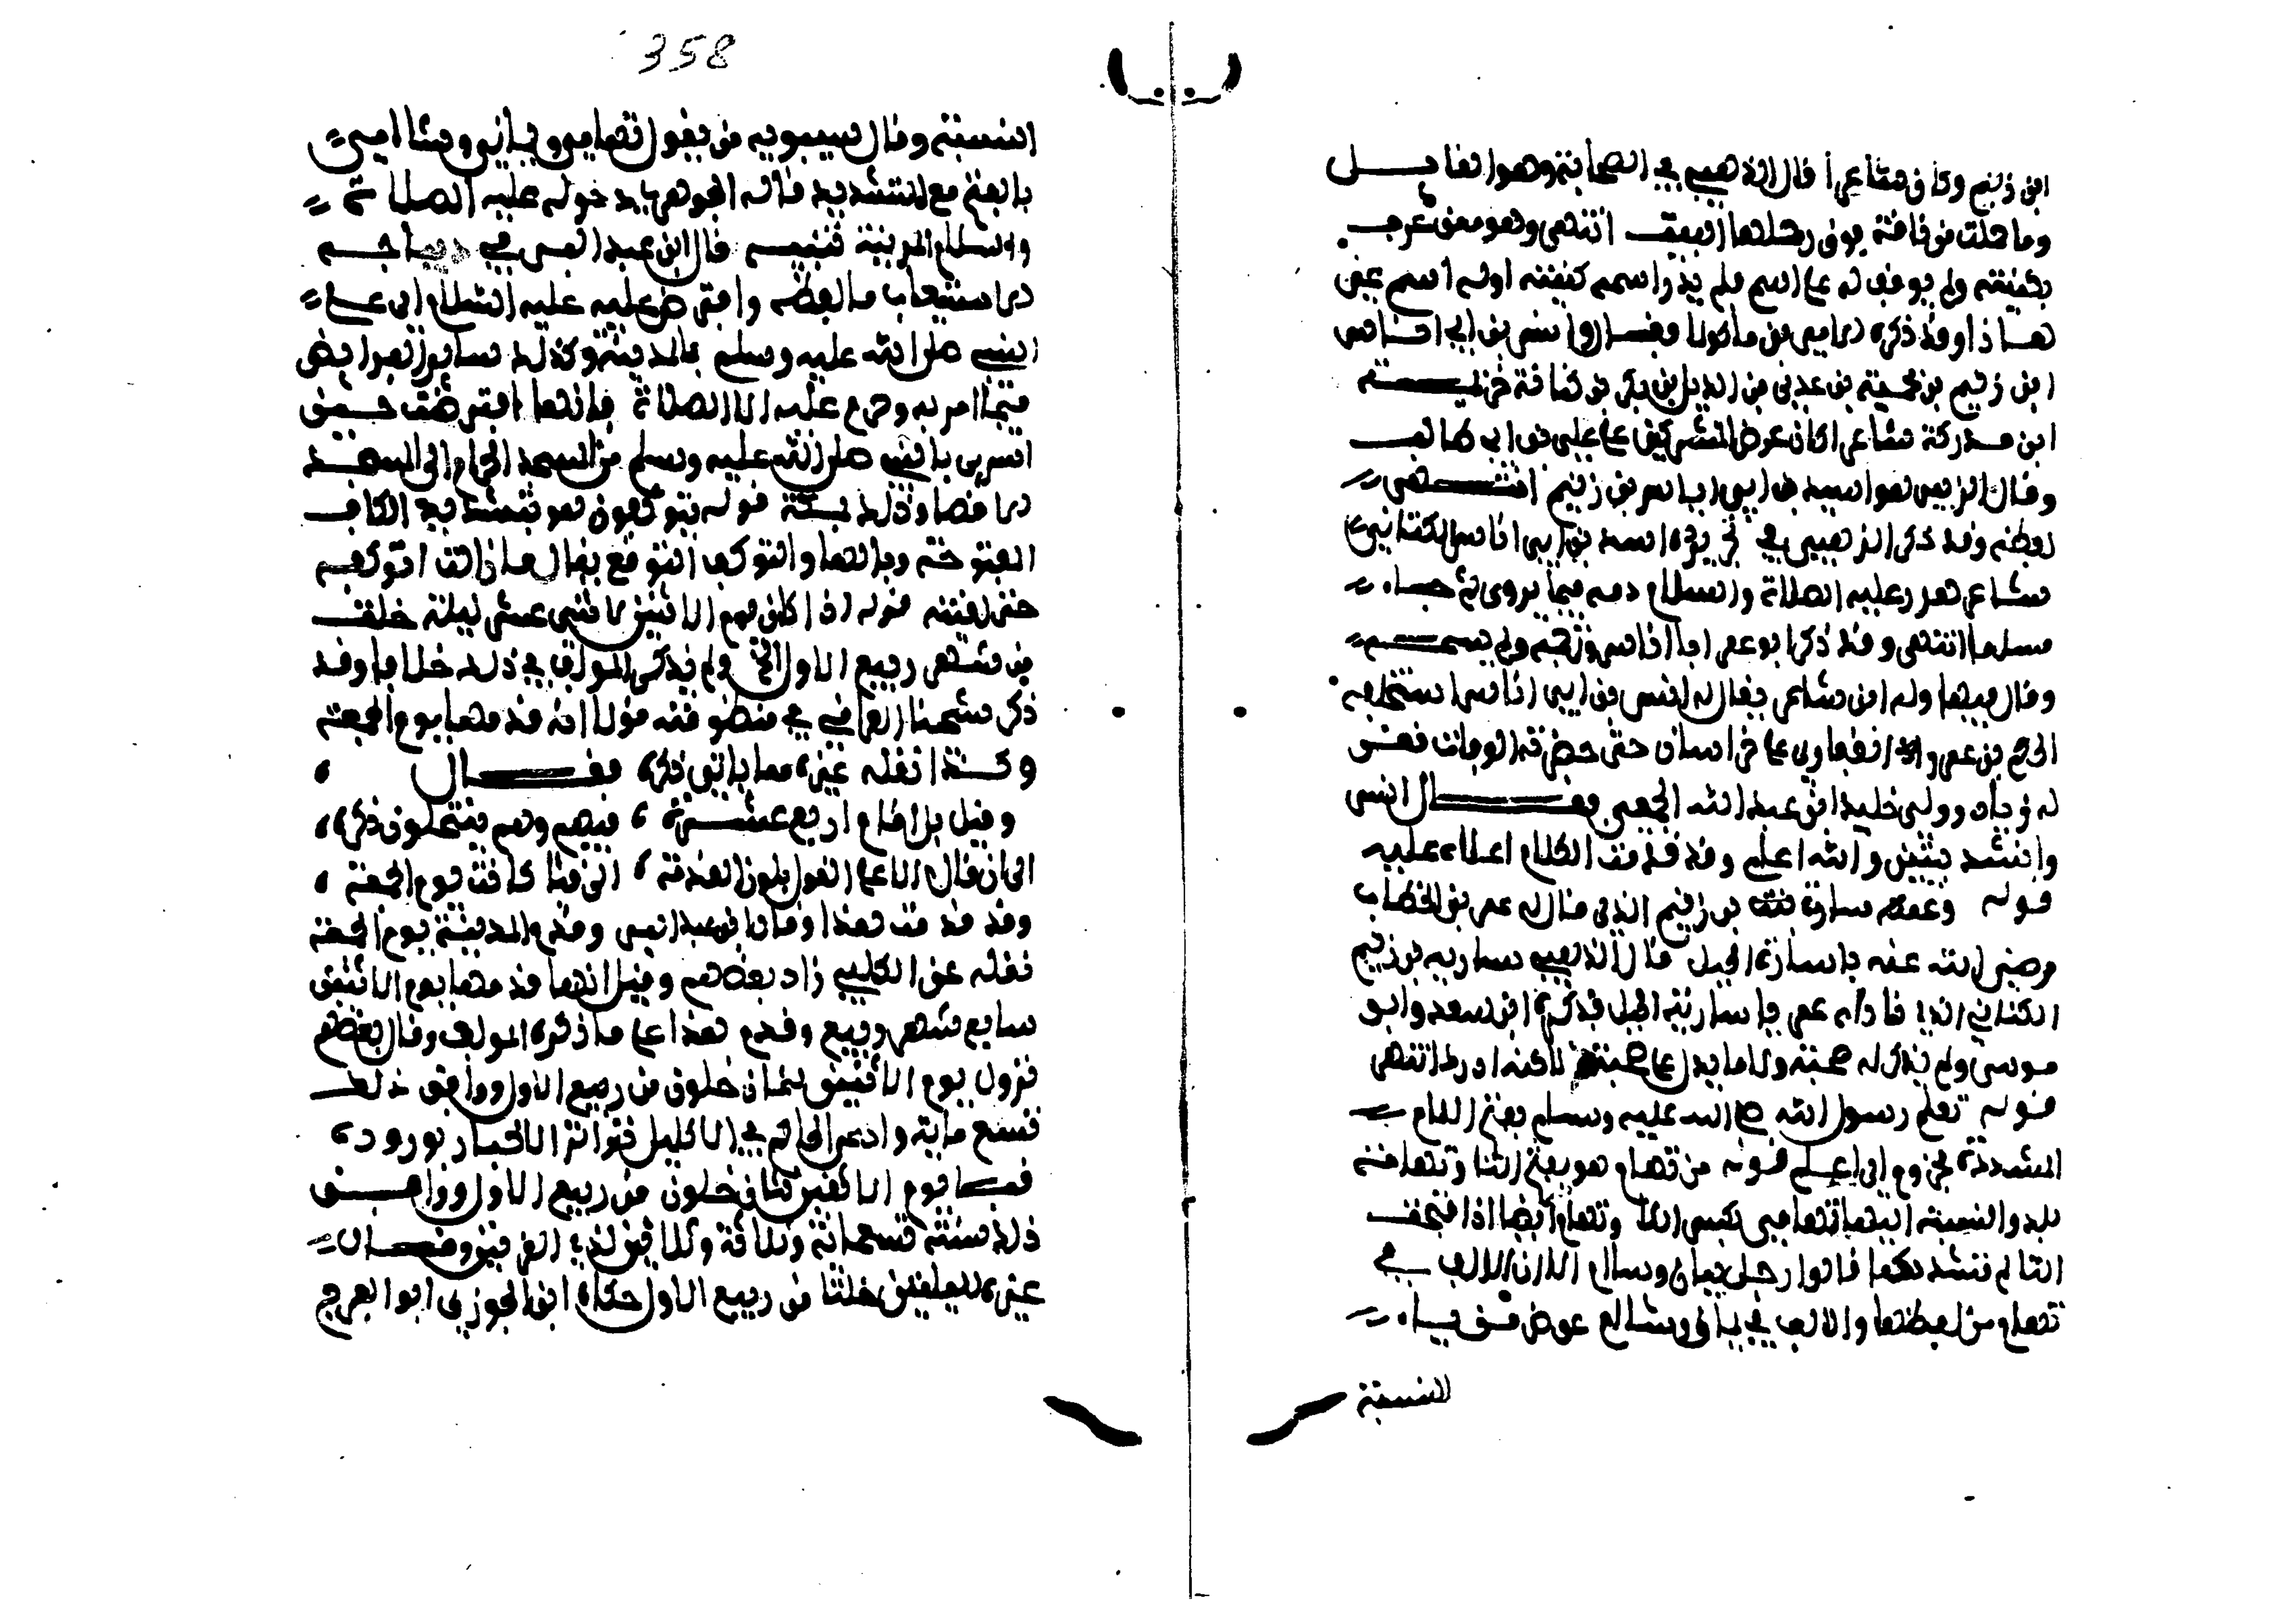 ابن زنيم وكان شاعرا قال الذهبي في الصحابة وهو القايل
وما حملت من ناقة فوق رحلها البيت انتهى وهو معروف
بكنيته ولم يوقف له على اسم فلم يذكر اسمه كنيته اوله اسم غير
هذا وقد ذكره الامير بن ماكولا فقال انس بن ابي اناس
ابن زنيم بن محمية بن عدي من الديل بن بكر بن كنانة خزيمة
ابن مدركة شاعر اكان عرض المشركين على علي بن ابي طالب
وقال الزبير هو اسيد بن ابي اياس بن زنيم انتهى
لفظه وقد ذكر الذهبي في تجريده اسيد بن ابي اناس الكناني
شاعر هدر عليه الصلاة والسلام دمه فيما يروى ثم جاء
مسلما انتهى وقد ذكر ابو عمر ابا اناس وترجمه ولم يسمه
وقال فيها وله ابن شاعر يقال له انس بن ابي اناس استخلفه
الحكم بن عمرو الغفاري على خراسان حتى حضرته الوفاة فعز
له زياد وولى خليد ابن عبد الله الحنفي فقال انس
وانشد بيتين والله اعلم وقد قدمت الكلام اعلاه عليه
قوله وعمه سارية بن زنيم الذي قال له عمر بن الخطاب
رضي الله عنه ياسارية الجبل قال الذهبي سارية بن زنيم
الكناني الذي ناداه عمر ياسارية الجبل فذكره ابن سعد وابو
موسى ولم يذكر له صحبة ولا ما يدل على صحبته لاكنه ادرك انتهى
قوله تعلم رسول الله صلى الله عليه وسلم بفتح اللام
المشددة مجزوم اي اعلم قوله من تهام هو بفتح التا وتهامة
بلد والنسبة اليها تهامي بكسر التا وتهام ايضا اذا فتحت
التا لم تشدد كما قالوا رجل يمان وشام الا ان الالف في
تهام من لفظها والالف في يمان وشام عوض من ياء
النسبة
358
النسبة وقال سيبويه من يقول تهامي ويماني وشامي
بالفتح مع التشديد قاله الجوهري باب دخوله عليه الصلاة
والسلام المدينة تنبيه قال ابن عبد البر في تراجم
الاستيعاب ما لفظه وافترض عليه عليه السلام اي على
النبي صلى الله عليه وسلم بالمدينة وكذلك ساير الفرايض
فيما امر به وحرم عليه الا الصلاة فانها افترضت حين
اسري بالنبي صلى الله عليه وسلم من المسجد الحرام الى المسجد
الاقصا وذلك بمكة قوله يتوكفون هو بتشديد الكاف
المفتوحة وبالفا والتوكف التوقع يقال مازلت اتوكفه
حتى لقيته قوله اذا كان يوم الاثنين لاثنتي عشر ليلة خلت
من شهر ربيع الاول الخ ولم يذكر المولف في ذلك خلافا وقد
ذكر شيخنا العراقي في منظومته قولا انه قدمها يوم الجمعة
وكذا نقله غيره مما ياتي ذكره فقال
وقيل بل اقام اربع عشرة ، فيهم وهم ينتحلون ذكره ،
الى ان قال الا على القول بكون القدمة ، الى قبا كانت يوم الجمعة ،
وقد قدمت هذا وقال ابن عبد البر وقدم المدينة يوم الجمعة
نقله عن الكلبي زاد بعضهم وقيل انها قدمها يوم الاثنين
سابع شهر ربيع وقدم هذا على ما ذكره المولف وقال بعضهم
نزول يوم الاثنين لثمان خلون من ربيع الاول ووافق ذلك
تسع ماية وادعى الحاكم في الاكليل تواتر الاخبار بوروده
قبا يوم الاثنين لثمان خلون من ربيع الاول ووافق
ذلك سنة تسعماية وثلاثة وثلاثين لذي القرنين وقال
غيره لليلتين خلتا من ربيع الاول حكاه ابن الجوزي ابو الفرج